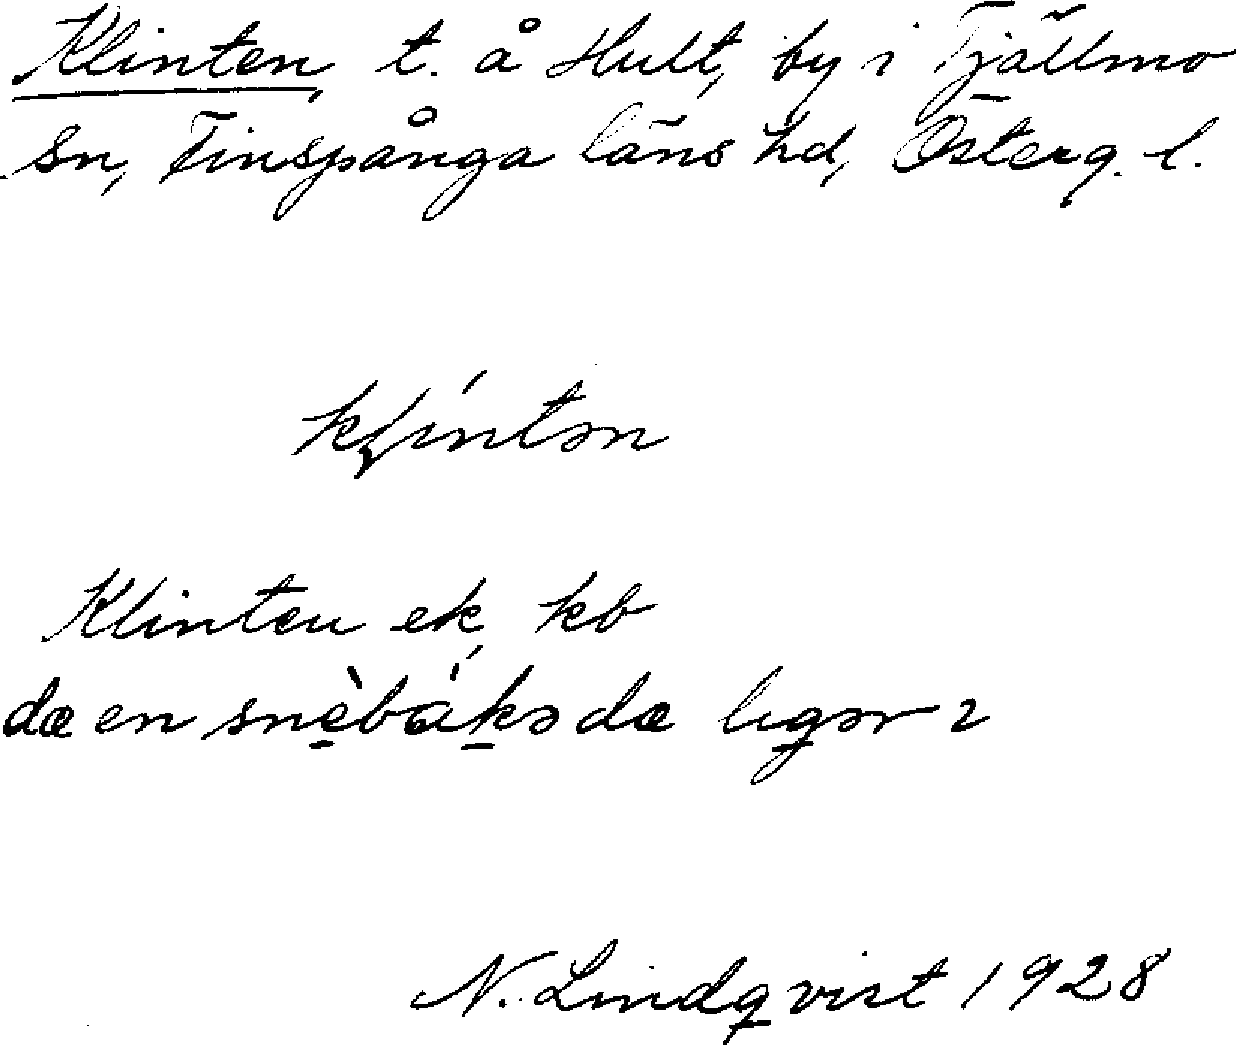 Klinten, t. å Hult, by i Tjällmo
sn, Finspånga läns hd, Österg. l.
kļíntən
Klinten ek, kb
dæ en snèbákə dæ ligər ı
N. Lindqvist 1928